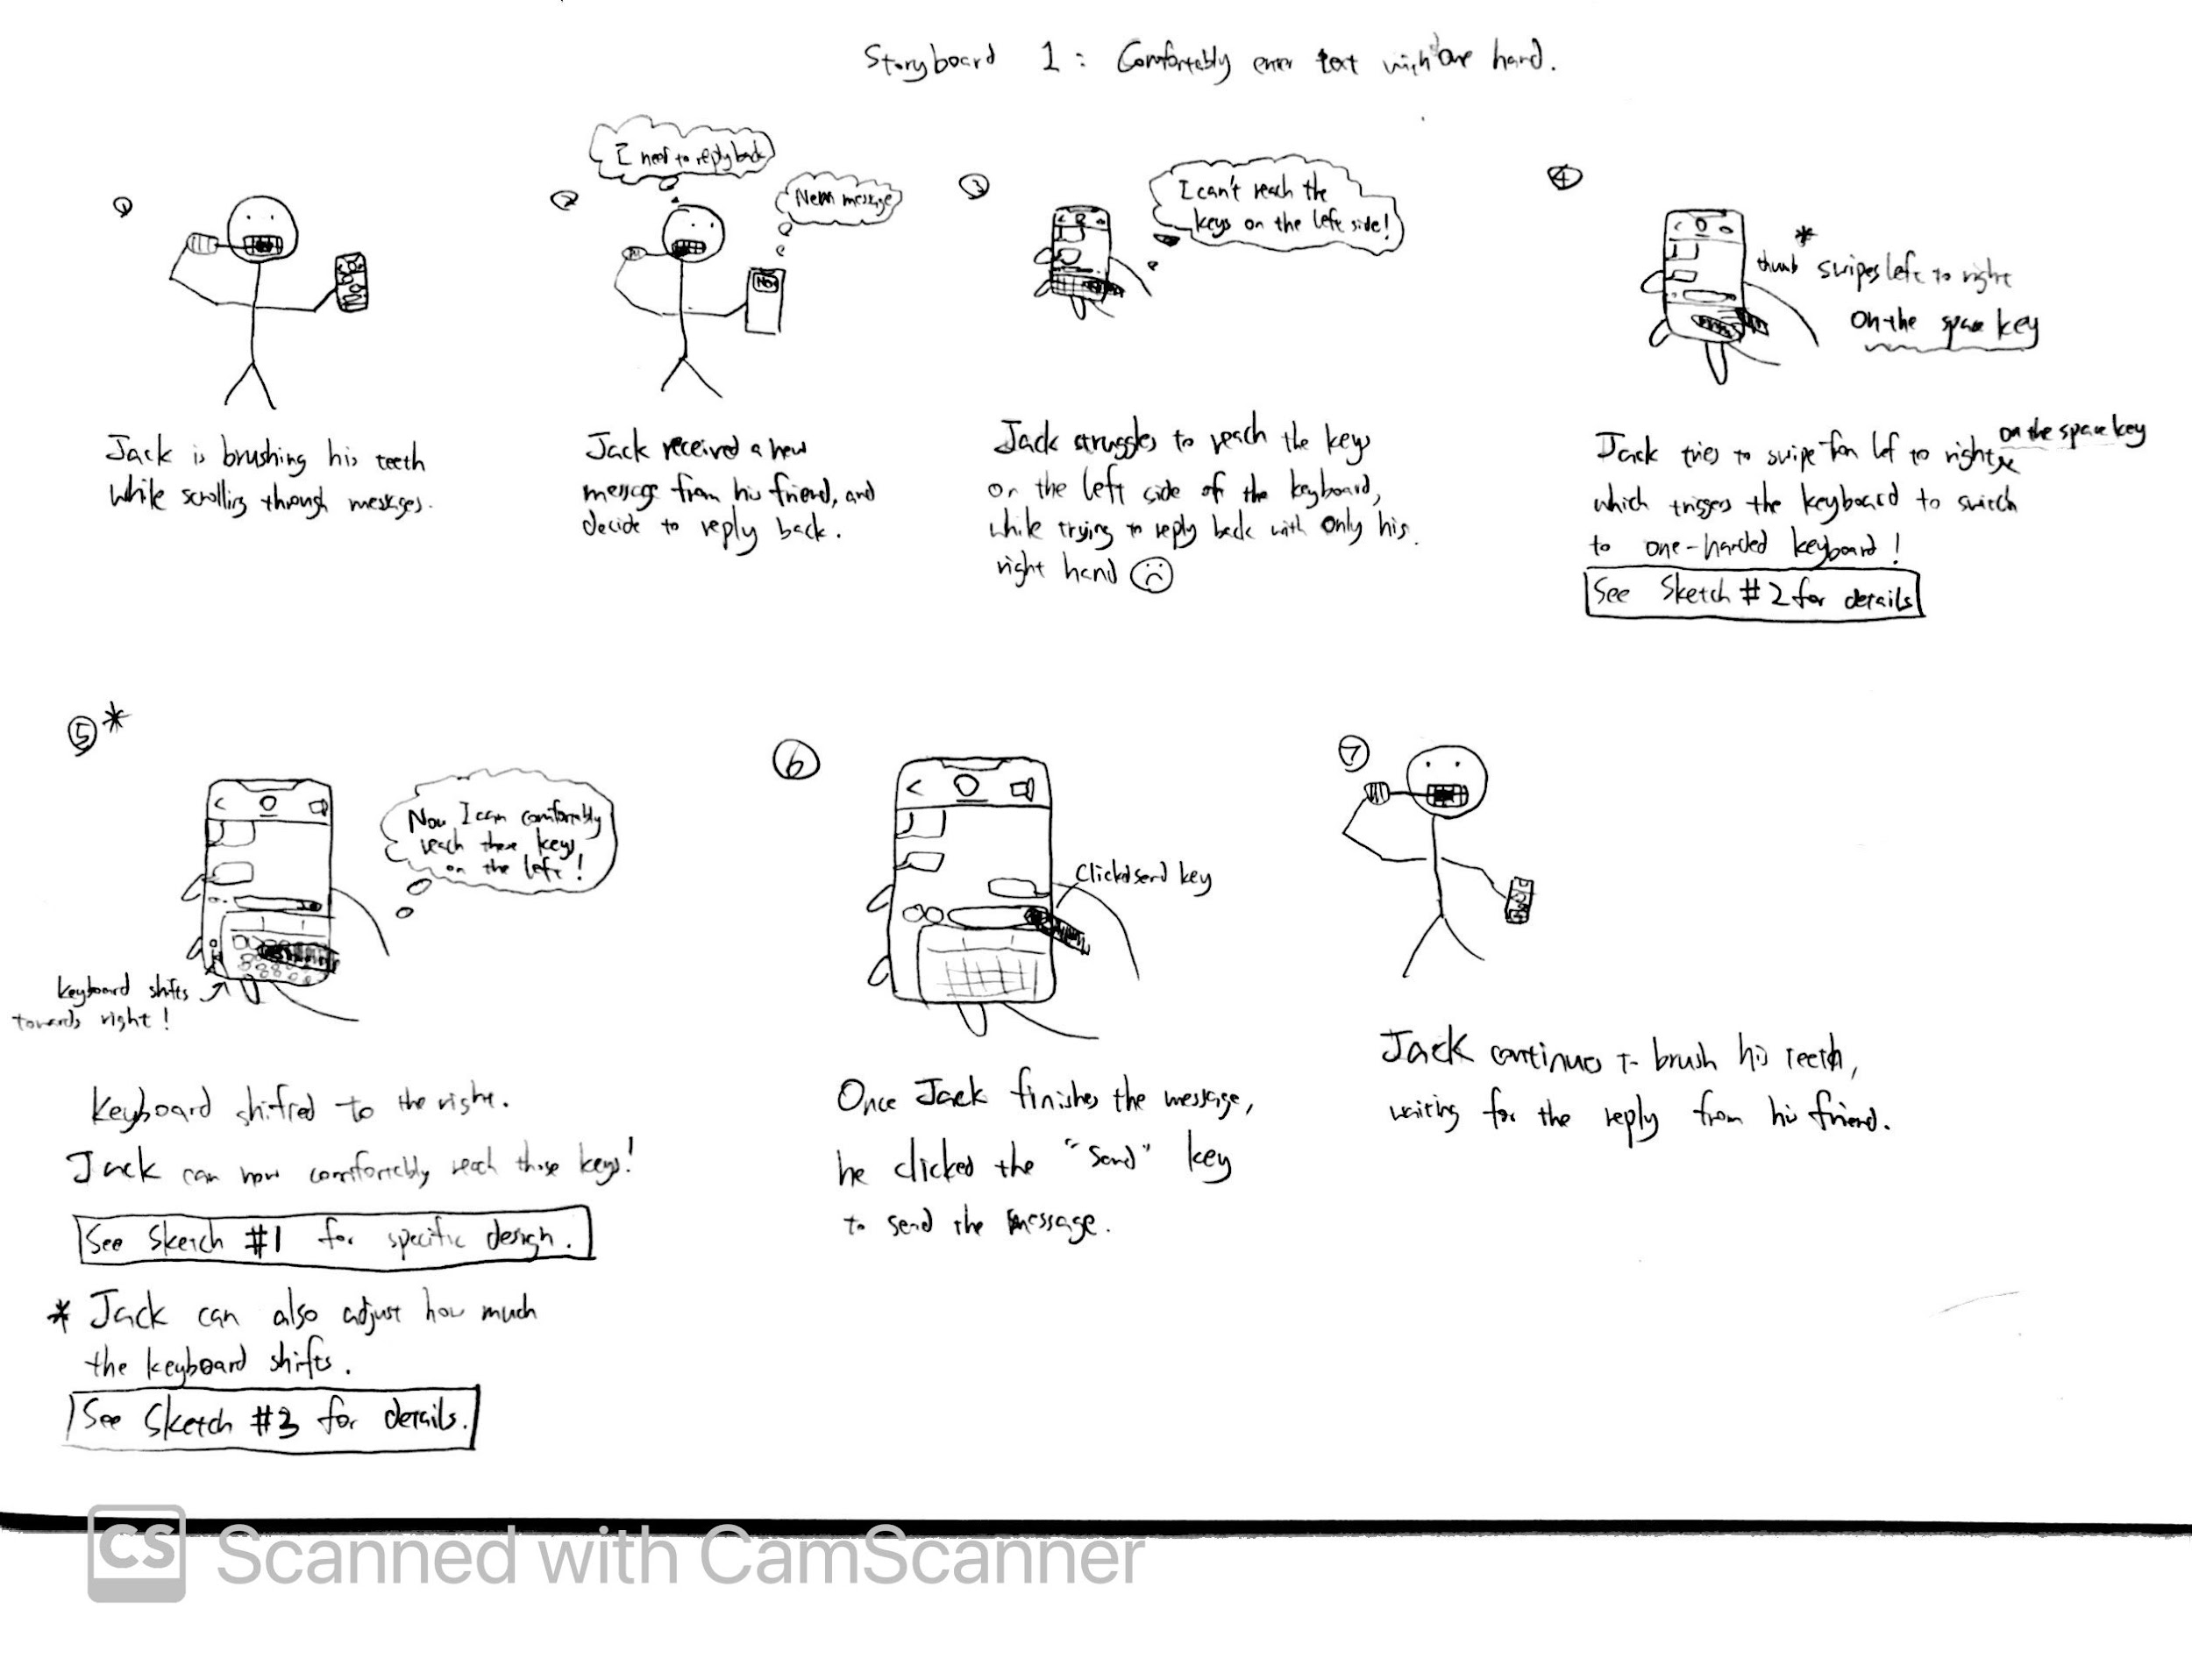 Storyboard 1 : Comfortably enter text with one hand.
1
Jack is brushing his teeth
while scrolling through messages.
2
I need to reply back
New message
Jack received a new
message from his friend, and
decide to reply back.
3
I can't reach the
keys on the left side!
Jack struggles to reach the keys
on the left side of the keyboard,
while trying to reply back with only his
right hand
4
*
thumb swipes left to right
on the space key
Jack tries to swipe from left to right on the space key
which triggers the keyboard to switch
to one-handed keyboard!
See Sketch #2 for details
5*
Now I can comfortably
reach these keys
on the left!
keyboard shifts
towards right!
Keyboard shifted to the right.
Jack can now comfortably reach those keys!
See Sketch #1 for specific design.
* Jack can also adjust how much
the keyboard shifts.
See Sketch #3 for details.
6
Clicked send key
Once Jack finishes the message,
he clicked the "Send" key
to send the message.
7
Jack continues to brush his teeth,
waiting for the reply from his friend.
CS Scanned with CamScanner